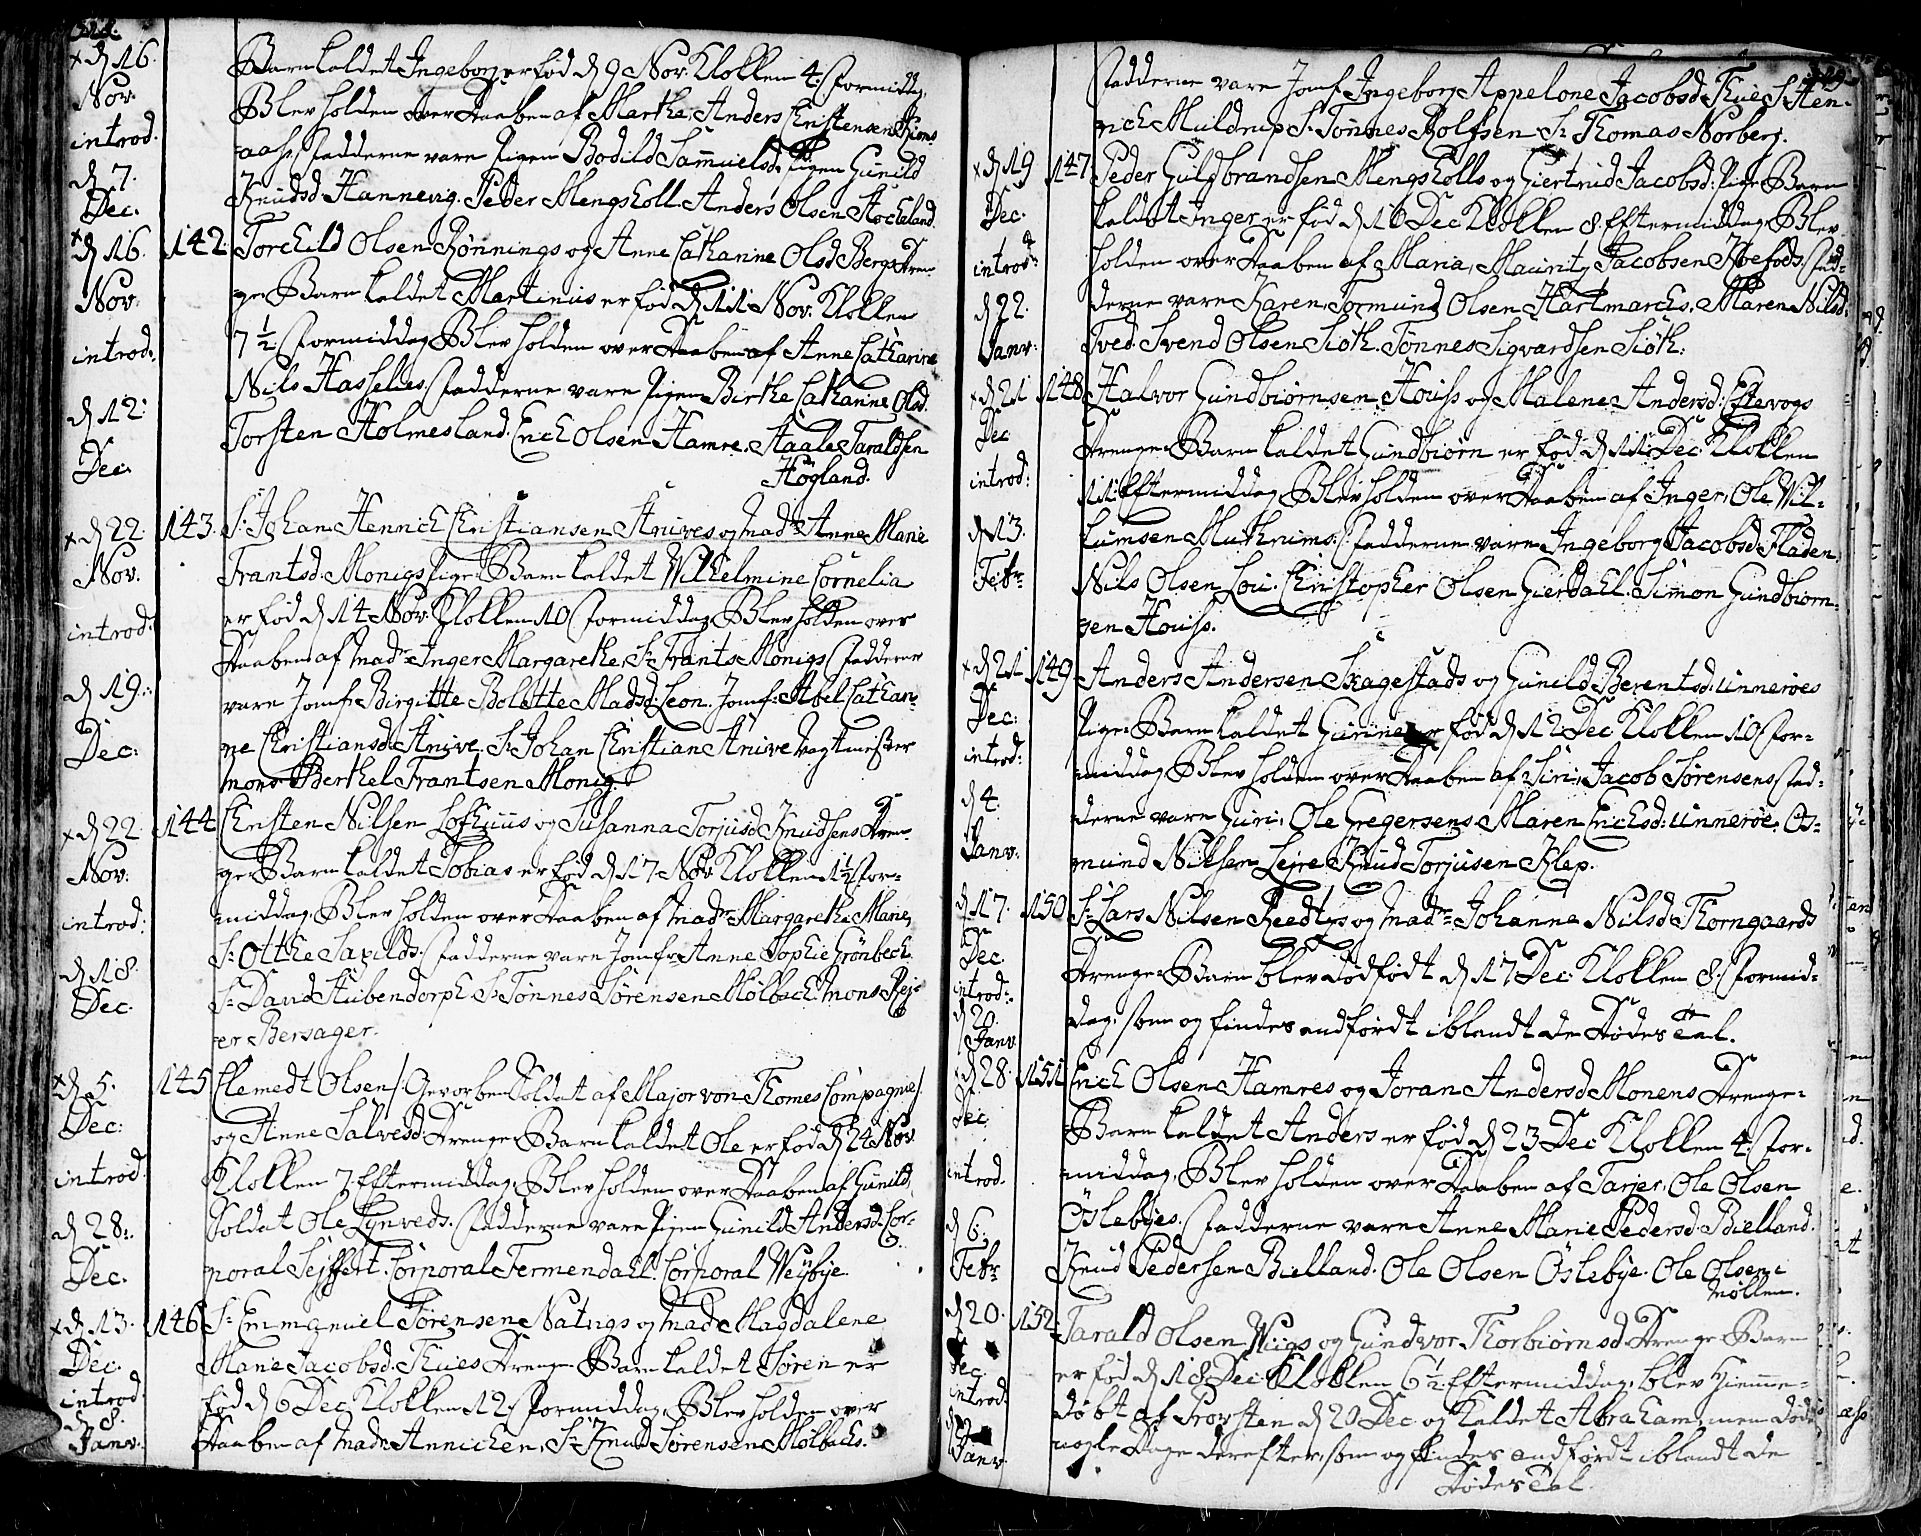 x d 16.
Nov.
introd.
d 7.
Dec.
Barn kaldet Ingeborg er fød d 9 Nov. Klokken 4. Formiddag,
Blev holden over Daaben af Marthe, Anders Christensen
Fadderne vare Pigen Bodild Samuelsd. Pigen Gunild
Knudsd. Hannevig. Peder Mengsholl. Anders Olsen Stockeland.
x d 16.
Nov.
introd.
d 12.
Dec.
142. Torchild Olsen Rønnings og Anne Cathanne Olsd. Bergs Dren-
ge Barn kaldet Martinus er fød d 11 Nov. Klokken
7 1/2 Formiddag Blev holden over Daaben af Anne Catharine
Nils Hasselies. Fadderne vare Pigen Birthe Cathanne Olsd.
Torsten Holmesland. Erich Olsen Hamre. Staale Taraldsen
Høgland.
x d 22.
Nov.
introd.
d 19.
Dec.
143. Sr. Johan Hennich Christiansen Anives og Madr. Anne Marie
Frantsd. Monigs Pige-Barn kaldet Wilhelmine Cornelia
er fød d 14 Nov. Klokken 10 Formiddag Blev holden over
Daaben af Madr. Inger Margarethe, Sr. Frants Monigs Fadderne
vare Jomfr. Birgitte Bolette Madsd. Leon. Jomf. Abel Cathari-
ne Christiansd. Anive. Sr. Johan Christian Anive Vagtmester
Mons. Berthel Frantsen Monig.
x d 22
Nov.
introd.
d 18.
Dec.
144. Christen Nilsen Lofthuus og Susanna Torjusd. Knudsens Dren-
ge Barn kaldet Tobias er fød d 17 Nov. Klokken 1 1/2 For-
middag. Blev holden over Daaben af Madr. Margarethe Marie,
Sr. Otthe Fadderne vare Jomfr. Anne Sophie Grønbech.
Sr. David Stubendorph. Sr. Tønnes Sørensen Molbach. Mons.
er Bersager.
x d 5.
Dec.
introd.
d 28.
Dec.
145. Clemedt Olsen /: Gevorben Soldat af Major von Thomes Compagnie :/
og Anne Salvesd. Drenge Barn kaldet Ole er fød d 24 Nov.
Klokken 7 Eftermiddag, Blev holden over Daaben af Gunild,
Soldat Ole Lynveds. Fadderne vare Pigen Gunild Andersd. Cor-
poral Seyffert. Corporal Fermendahl. Corporal Weybye.
x d 13.
Dec.
introd.
d 8.
Janv.
146. Sr. Emmanuel Sørensen Natvigs og Madr. Magdalene
Marie Jacobsd. Thues Drenge Barn kaldet Søren er
fød d 6 Dec. Klokken 12. Formiddag. Blev holden over
Daaben af Madr. Annichen, Sr. Knud Sørensen Molbachs.
Fadderne vare Jomf. Ingeborg Appelone Jacobsd. Thue Sr. Hen-
rich Muldrup Sr. Tønnes Rolfsen Sr. Thomas Norberg.
x d 19
Dec.
introd.
d 22.
Janv.
147. Peder Guldbrandsen Mengsholls og Giertrud Jacobsd. Pige Barn
kaldet Inger er fød d 16 Dec. Klokken 8. Eftermiddag Blev
holden over Daaben af Maria, Mauritz Jacobsen Roefods. Fad-
derne vare Karen, Tormund Olsen Hartmarchs. Maren Nilsd.
Tved. Svend Olsen Siøth. Tønnes Sigvardsen Siøth.
x d 21
Dec
introd:
d 13.
Febr.
148. Halvor Gundbiørnsen Houss og Malene Andersd. Eftevogs
Drenge Barn kaldet Gundbiørn er fød d 11 Dec. Klokken
11. Eftermiddag Blev holden over Daaben af Inger, Ole Wil-
lumsen Fadderne vare Ingeborg Jacobsd. Fladen.
Nils Olsen Lou. Christopher Olsen Gierdahl. Simon Gundbiørn-
sen Houss.
x d 21
Dec.
introd:
d 4.
Janv.
149. Anders Andersen Skagestads og Gunild Berentsd. Unnerøes
Pige Barn kaldet Gunne er fød d 12 Dec. Klokken 10 For-
middag Blev holden over Daaben af Siri, Jacob Sørensens Fad-
derne vare Guri, Ole Gregersens. Maren Erichsd. Unnerøe. Os-
mund Nilsen Leire Knud Torjusen Klep.
d 17.
Dec.
introd.
d 20.
Janv
150. Sr. Lars Nilsen Reedtzs og Madr. Johanne Nilsd. Thorngaards
Drenge Barn blev dødfødt d 17 Dec. Klokken 8. Formid-
dag, som og findes andførdt iblandt de Dødes Tal.
d 28.
Dec.
introd.
d 6.
Febr.
151. Erich Olsen Hamres og Joran Andersd. Monens Drenge-
Barn kaldet Anders er fød d 23 Dec Klokken 4. For-
middag. Blev holden over Daaben af Tarjer, Ole Olsen
Oslebyes. Fadderne vare Anne Marie Pedersd. Bielland.
Knud Pedersen Bielland. Ole Olsen Oslebye. Ole Olsen
Møllen.
d 20.
Dec
introd.
Janv
152. Tarald Olsen Wiigs og Gundvor Thorbiørnsd. Drenge Barn
er fød d 18 Dec. Klokken 6 1/2 Eftermiddag, blev hiemme-
døbt af Provsten d 20 Dec. og kaldet Abraham, men døde
nogle Dage derefter, som og findes andførdt iblandt de
Dødes Tal.